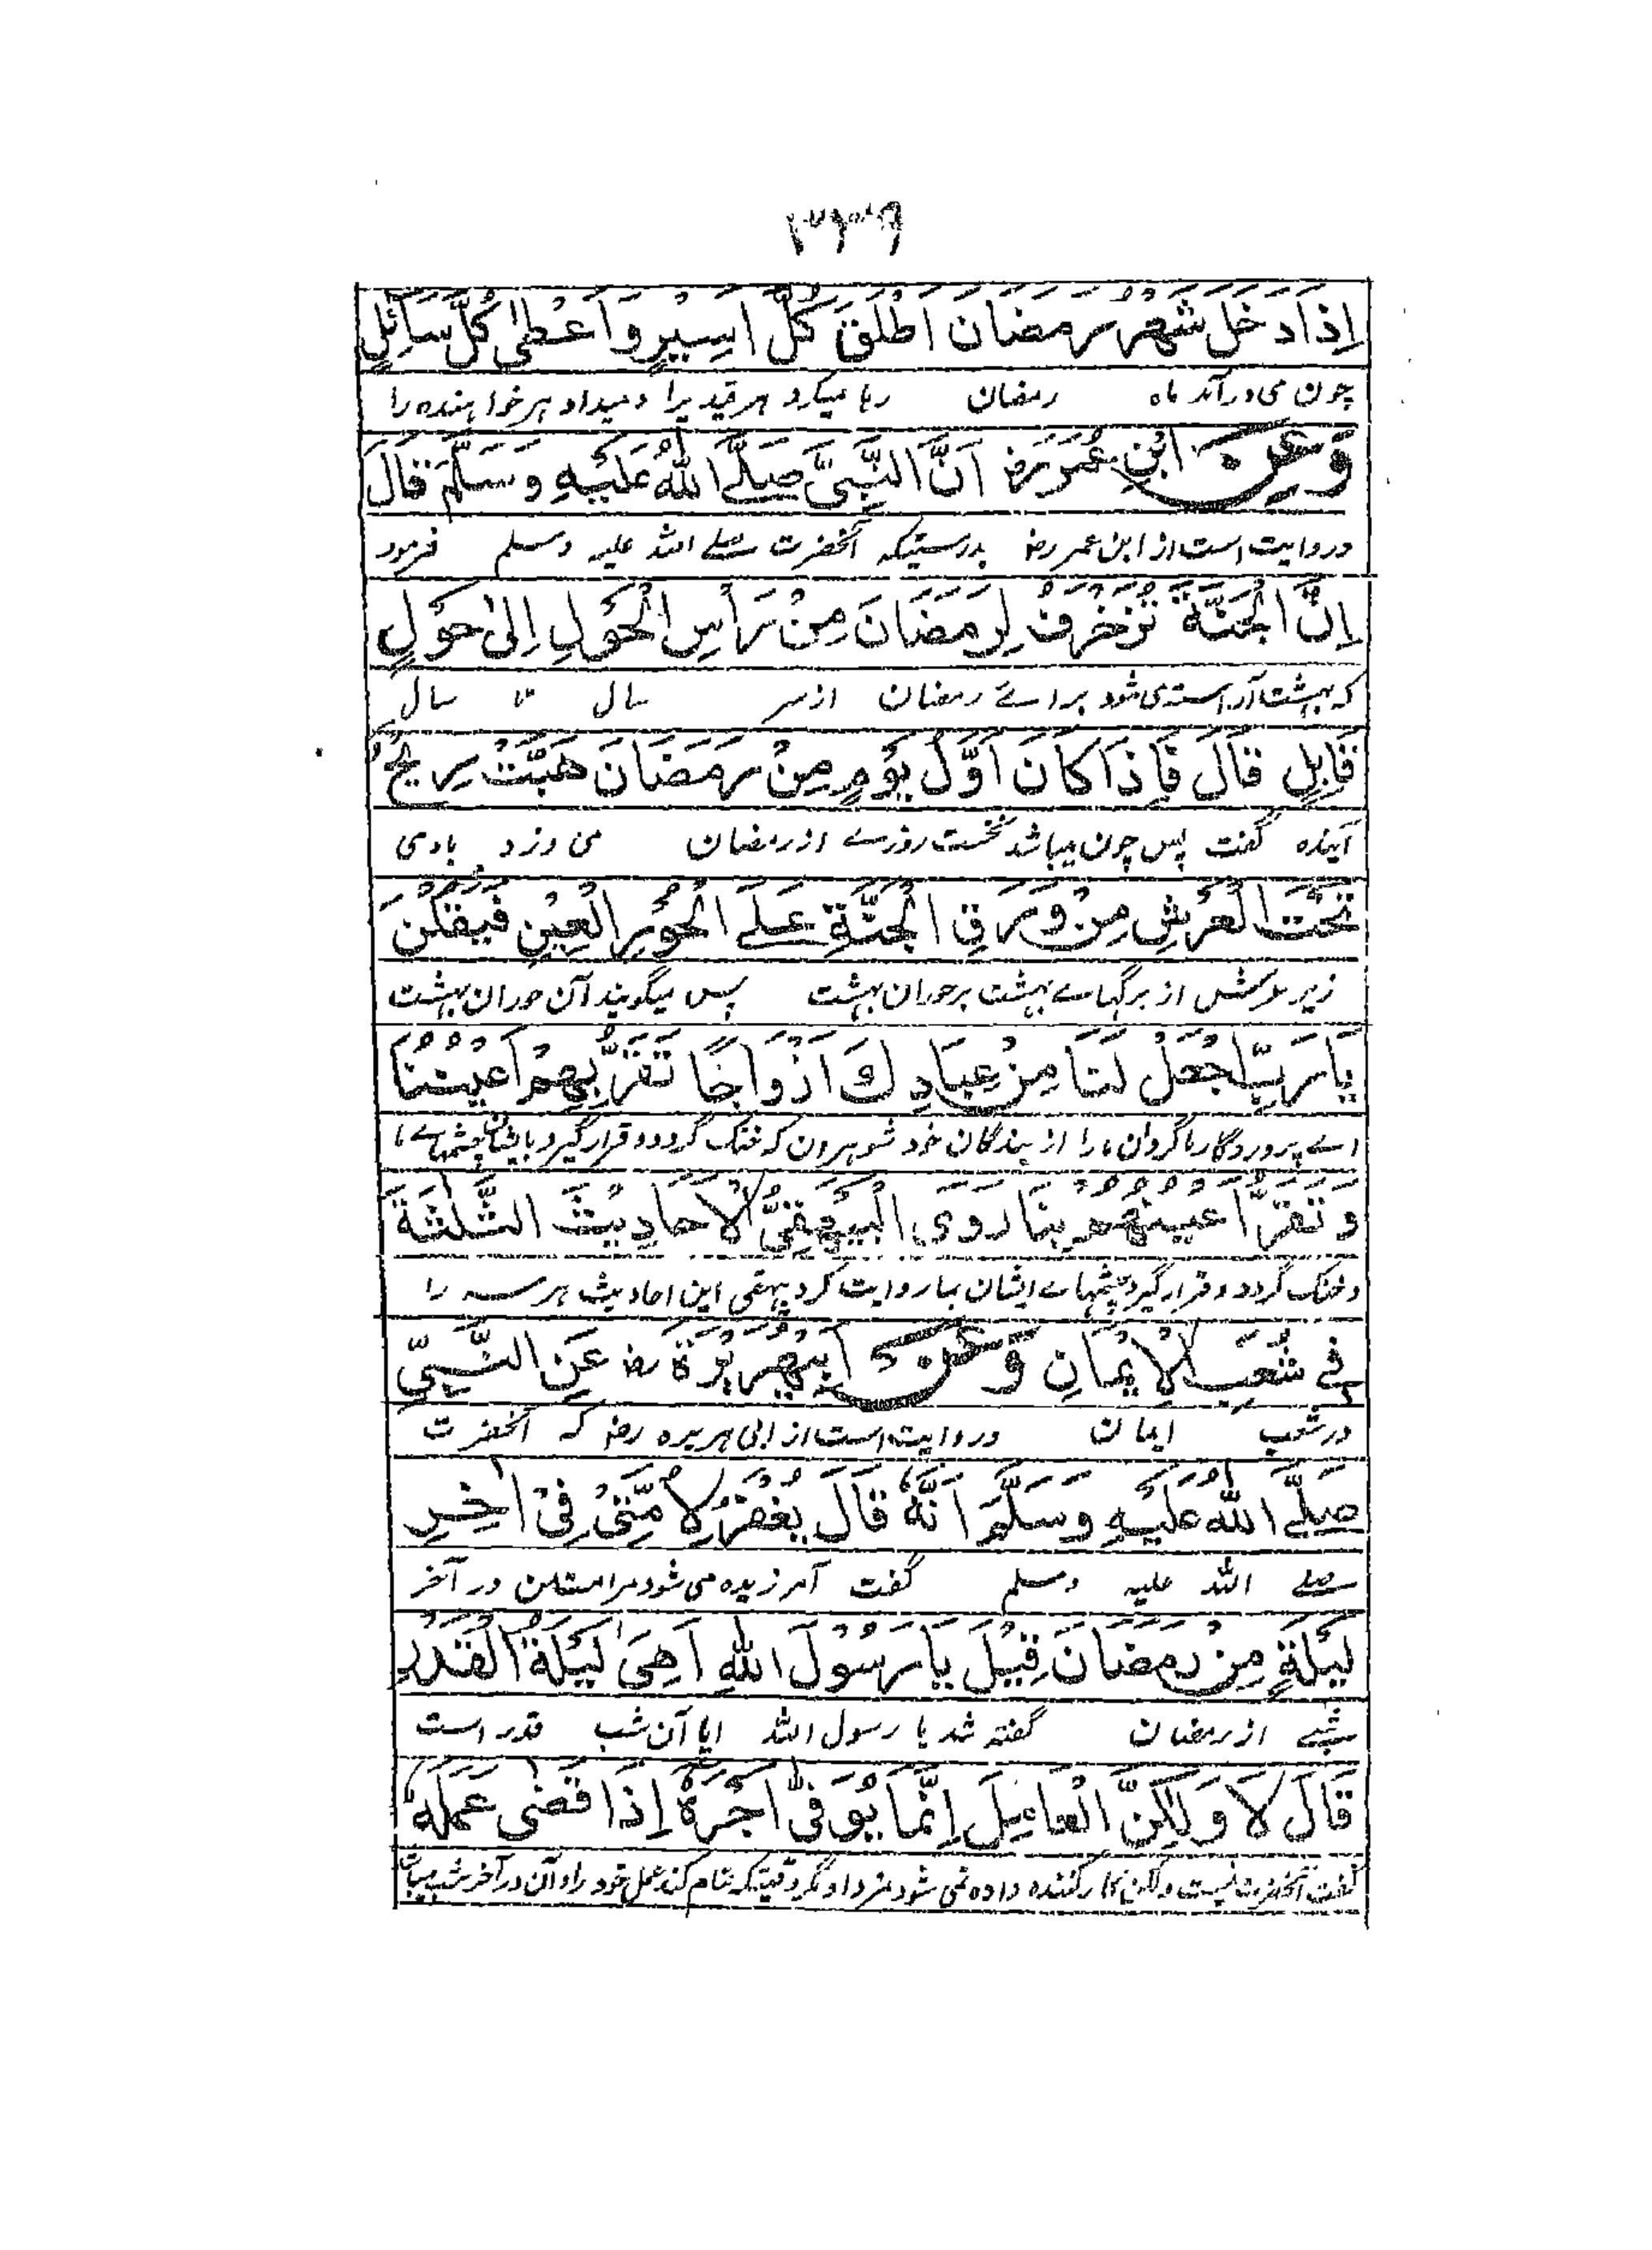 ۳۳۹
اِذَا دَخَلَ شَهْرُ رَمَضَانَ اَطْلَقَ كُلَّ اَسِيْرٍ وَاَعْطٰى كُلَّ سَائِلٍ
چون می درآمد ماه رمضان رہا میکرد ہر قیدیرا و میداد ہر خواہندہ را
وَعَنِ ابْنِ عُمَرَ رض اَنَّ النَّبِىَّ صَلَّے اللّٰهُ عَلَيْهِ وَسَلَّمَ قَالَ
و روایت است از ابن عمر رض بدرستیکہ آنحضرت صلے اللہ علیہ وسلم فرمود
اِنَّ الْجَنَّةَ تُزَخْرَفُ لِرَمَضَانَ مِنْ رَأْسِ الْحَوْلِ اِلٰى حَوْلٍ
کہ بہشت آراستہ می شود براے رمضان از سر سال تا سال
قَابِلٍ قَالَ فَاِذَا كَانَ اَوَّلُ يَوْمٍ مِنْ رَمَضَانَ هَبَّتْ رِيْحٌ
آیندہ گفت پس چون میباشد نخست روزے از رمضان می وزد بادی
تَحْتَ الْعَرْشِ مِنْ وَرَقِ الْجَنَّةِ عَلَے الْحُوْرِ الْعِيْنِ فَيَقُلْنَ
زیر عرش از برگہاے بہشت بر حوران بہشت پس میگویند آن حوران بہشت
يَا رَبِّ اجْعَلْ لَنَا مِنْ عِبَادِكَ اَزْوَاجًا تَقَرُّ بِهِمْ اَعْيُنُنَا
اے پروردگار ما گردان ما را از بندگان خود شوہران کہ خنک گردد و قرار گیرد بایشان چشمہاے ما
وَتَقَرُّ اَعْيُنُهُمْ بِنَا رَوَى الْبَيْهَقِىُّ الْاَحَادِيْثَ الثَّلٰثَةَ
و خنک گردد و قرار گیرد چشمہاے ایشان بما روایت کرد بیہقی این احادیث ہر سہ را
فِى شُعَبِ الْاِيْمَانِ وَعَنْ اَبِيْهُرَيْرَةَ رض عَنِ النَّبِىِّ
در شعب ایمان و روایت است از ابی ہریرہ رض کہ آنحضرت
صَلَّے اللّٰهُ عَلَيْهِ وَسَلَّمَ اَنَّهٗ قَالَ يُغْفَرُ لِاُمَّتِىْ فِىْ اٰخِرِ
صلے اللہ علیہ وسلم گفت آمرزیدہ می شود مر امت من در آخر
لَيْلَةٍ مِنْ رَمَضَانَ قِيْلَ يَا رَسُوْلَ اللّٰهِ اَهِىَ لَيْلَةُ الْقَدْرِ
شبے از رمضان گفتہ شد یا رسول اللہ ایا آن شب قدر است
قَالَ لَا وَلٰكِنَّ الْعَامِلَ اِنَّمَا يُوَفّٰى اَجْرَهٗ اِذَا قَضٰى عَمَلَهٗ
گفت آنحضرت نیست ولکن کار کنندہ دادہ نمی شود مزد او مگر وقتیکہ تمام کند عمل خود را و آن در آخر شب